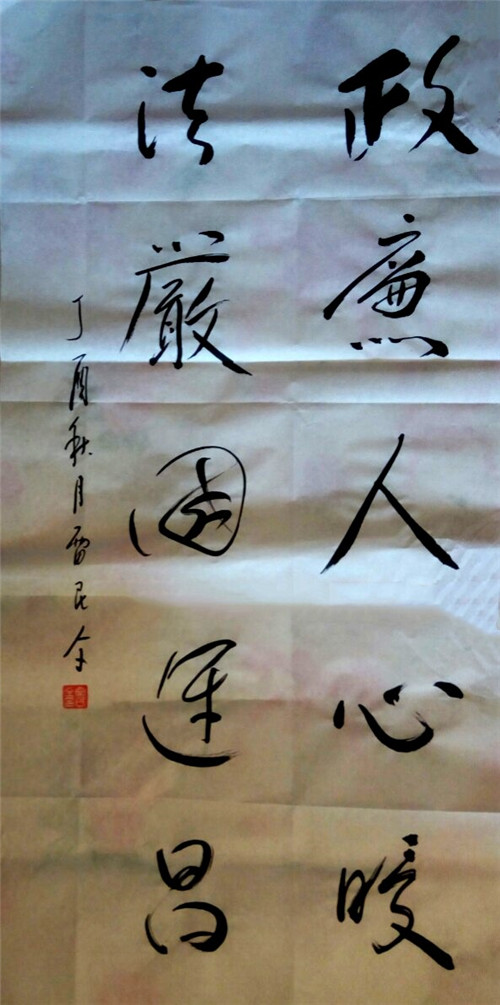 政廉人心暖
法嚴國運昌
丁酉秋月雷民令